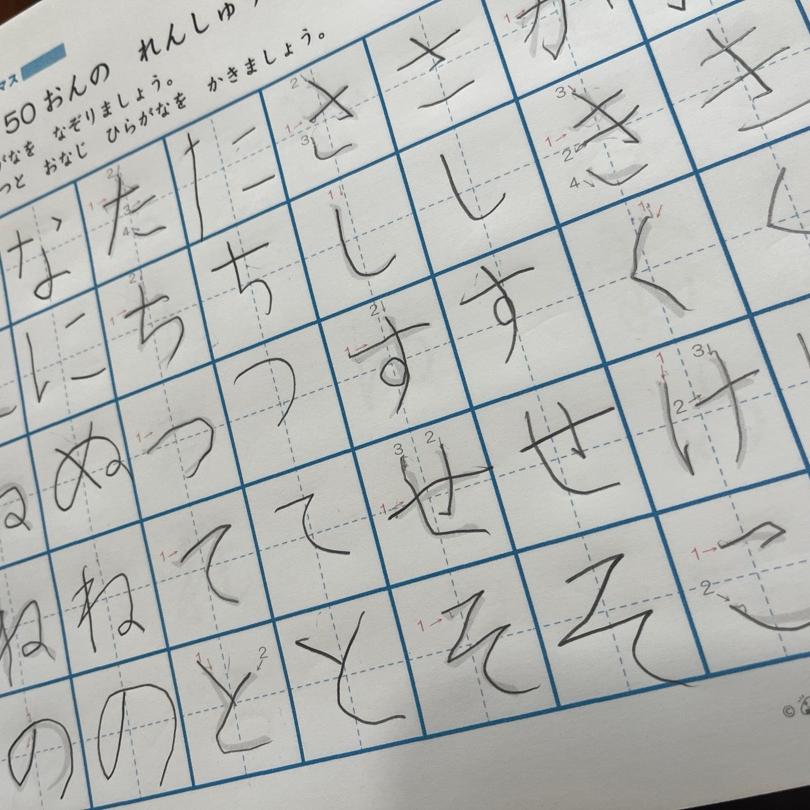 マス
50おんの れんしゅ
がなを なぞりましょう。
っと おなじ ひらがなを かきましょう。
き く
か き く け こ
さ し す せ そ
さ し す せ そ
た ち つ て と
た ち つ て と
な に ぬ ね の
ぬ ね の